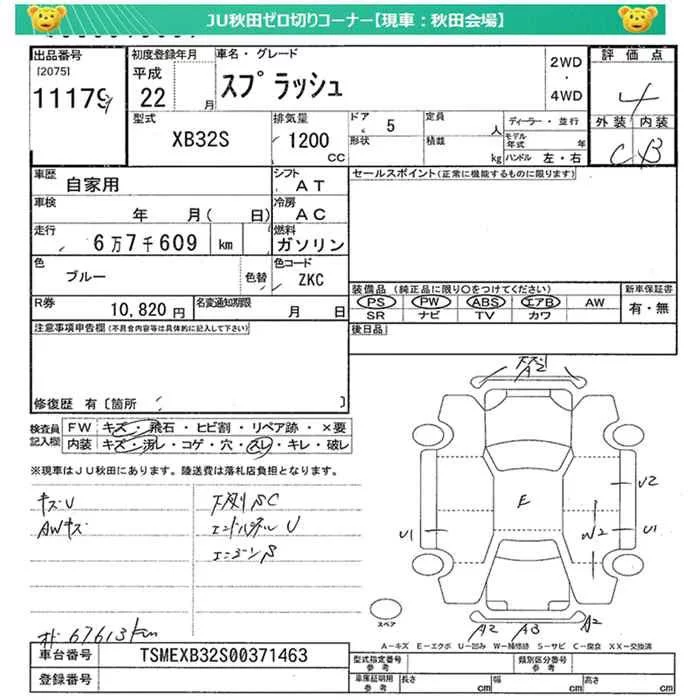 JU秋田ゼロ切りコーナー【現車：秋田会場】
出品番号
[2075]
11179
初度登録年月
平成
22
月
車名・グレード
スプラッシュ
2WD
・
4WD
評価点
4
外装 内装
C B
型式
XB32S
排気量
1200
CC
ドア
5
形状
定員
人
積載
kg
ディーラー・並行
モデル年式
年
ハンドル 左・右
車歴
自家用
シフト
AT
セールスポイント(正常に機能するものに限ります)
車検
年 月( 日)
冷房
AC
走行
6万7千609 km
燃料
ガソリン
色
ブルー
色替
色コード
ZKC
装備品(純正品に限り○をつけてください)
新車保証書
PS PW ABS エアB AW
有・無
SR ナビ TV カワ
R券
10,820円
名変通知期限
月 日
後日品
注意事項申告欄(不具合内容等は具体的に記入して下さい)
修復歴 有 [箇所 ]
検査員記入欄
FW キズ・飛石・ヒビ割・リペア跡・×要
内装 キズ・汚レ・コゲ・穴・スレ・キレ・破レ
※現車はJU秋田にあります。陸送費は落札店負担となります。
キズU
AWキズ
下廻りSC
エンドパネルU
エンジンS
67613km
A2
E
U2
U1
W2
U1
A2 A3 A2
スペア
A－キズ E－エクボ U－凹み W－補修跡 S－サビ C－腐食 XX－交換済
車台番号
TSMEXB32S00371463
登録番号
型式指定番号
参考
類別区分番号
参考
車庫証明用
参考
長さ
cm
幅
cm
高さ
cm